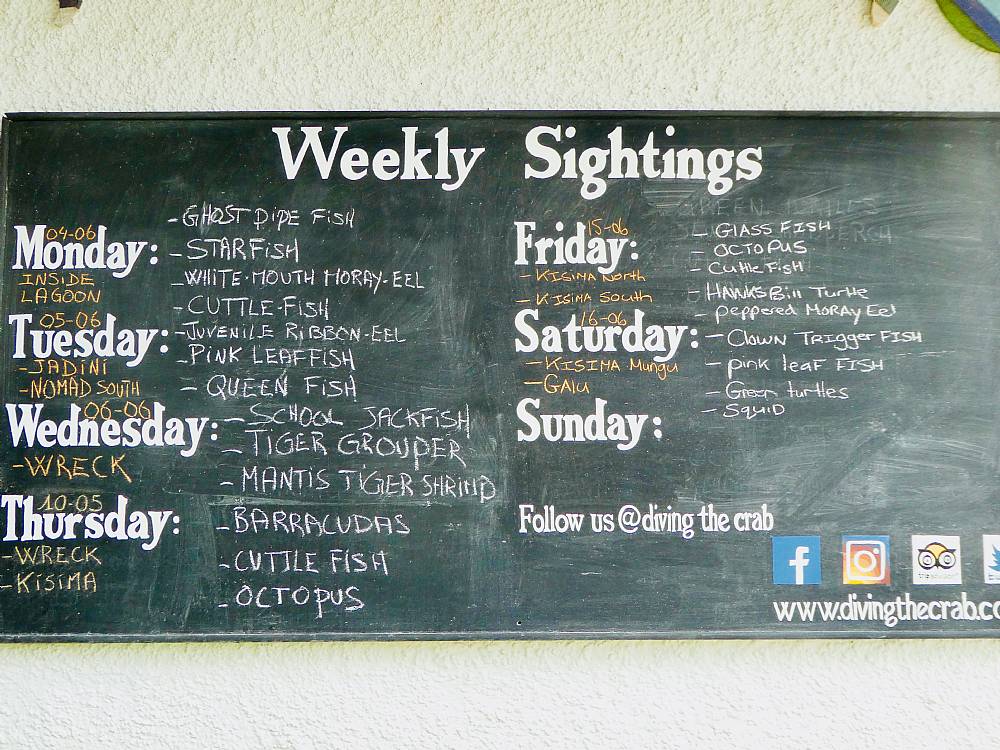 Weekly Sightings
- GHOST PIPE FISH
04-06
Monday:
- STARFISH
INSIDE
LAGOON
- WHITE-MOUTH MORAY-EEL
- CUTTLE-FISH
05-06
Tuesday:
- JUVENILE RIBBON-EEL
- PINK LEAFFISH
- JADINI
- NOMAD SOUTH
- QUEEN FISH
06-06
Wednesday:
- SCHOOL JACKFISH
- TIGER GROUPER
- WRECK
- MANTIS TIGER SHRIMP
10-05
Thursday:
- BARRACUDAS
- WRECK
- KISIMA
- CUTTLE FISH
- OCTOPUS
15-06
Friday:
- GLASS FISH
- OCTOPUS
- Cuttle Fish
- KISIMA North
- KISIMA South
- HAWKSBill Turtle
- peppered MORAY Eel
16-06
Saturday:
- Clown Trigger FISH
- KISIMA Mungu
- GALU
- pink leaf FISH
- Green turtles
- Squid
Sunday:
Follow us @diving the crab
f
www.divingthecrab.co